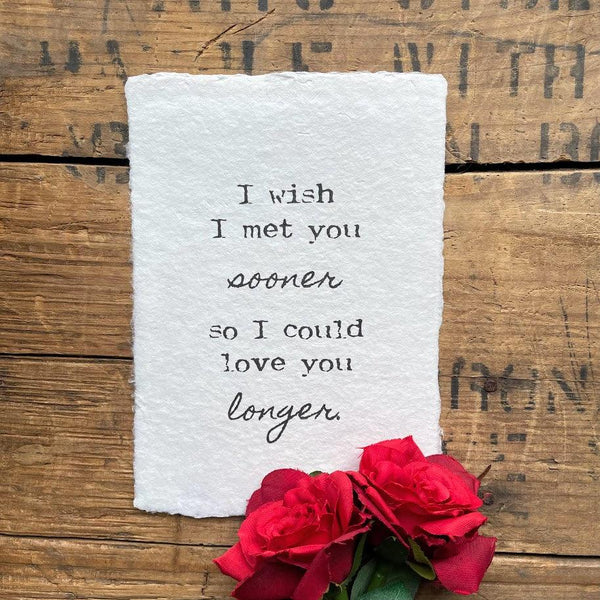 WITH
I wish
I met you
sooner
so I could
love you
longer.